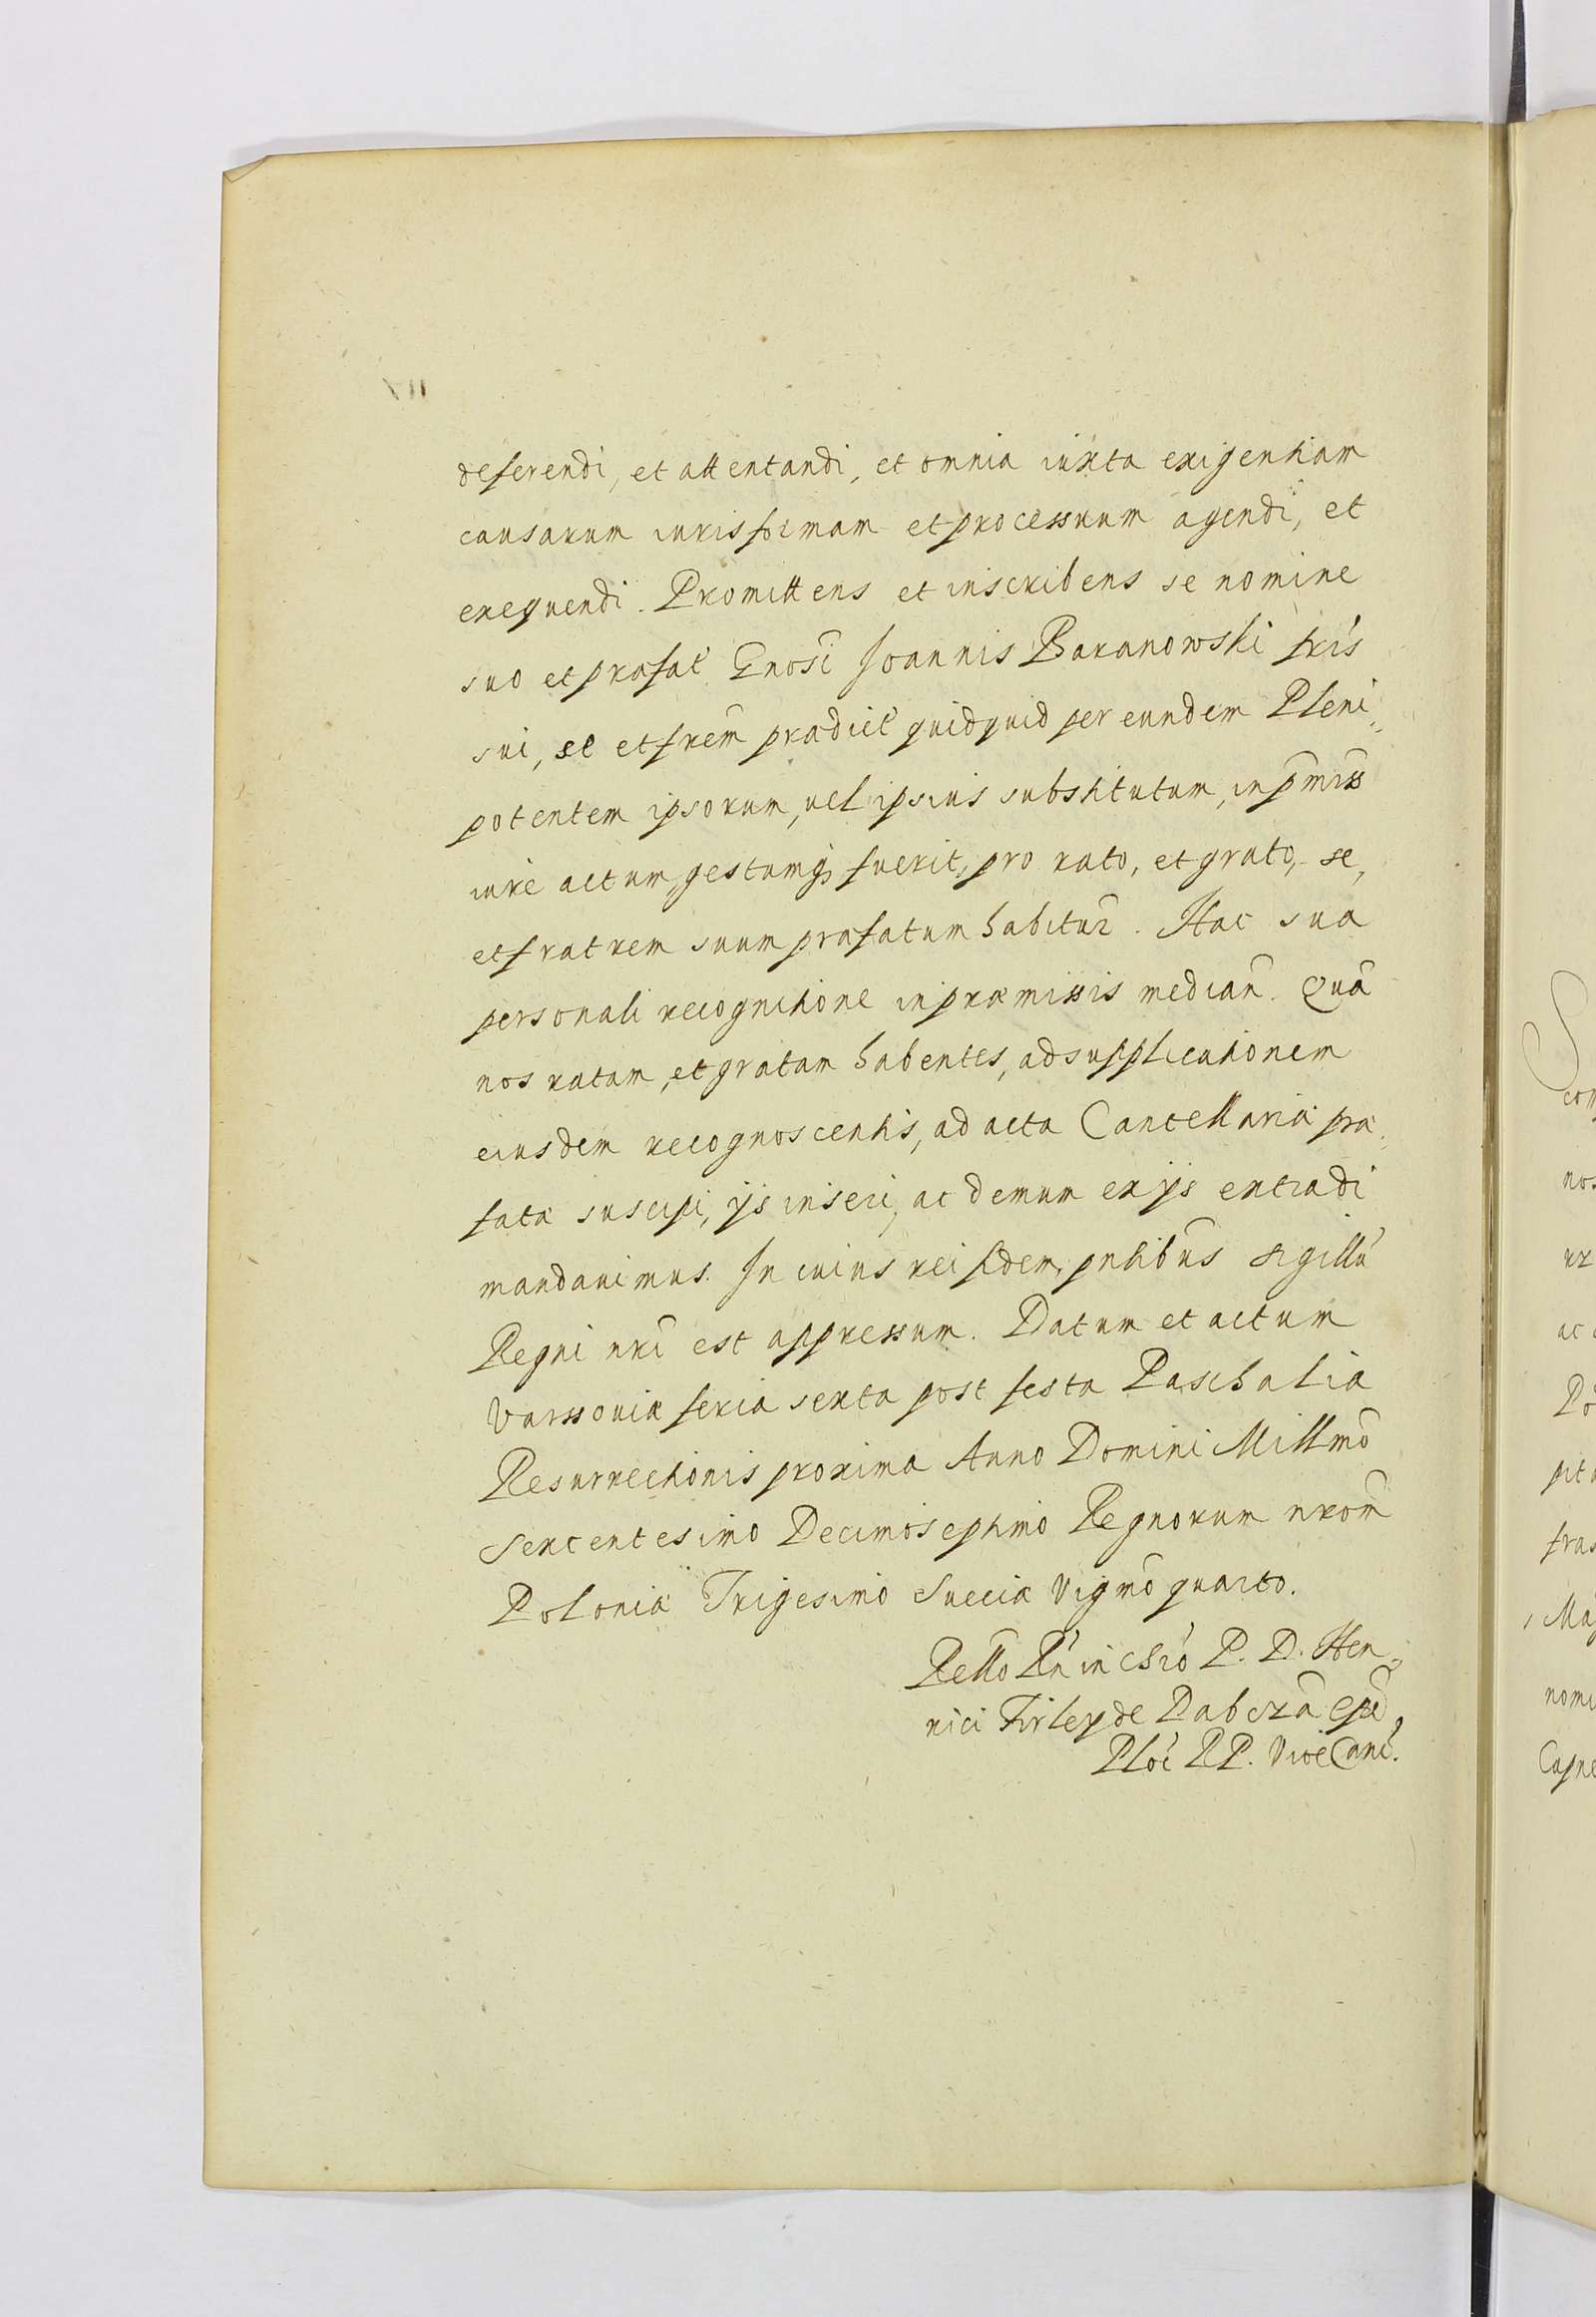 deferendi, et attentandi, et omnia iuxta exigentiam
causarum iuris formam et processuum agendi, et
exequendi. Promittens et inscribens se nomine
suo et præfat Gnosi Joannis Baranowski fris
sui, se et frem prædict quidquid per eundem Pleni-
potentem ipsorum, uel ipsius substitutum, in pmiss
iure actum, gestumq fuerit, pro rato, et grato, se,
et fratrem suum præfatum habitur. Hac sua
personali recognitione in præmissis median. Quã
nos ratam, et gratam habentes, ad supplicationem
eiusdem recognoscentis, ad acta Cancellariæ præ-
fatæ suscipi, ijs inseri, ac demum ex ijs extradi
mandauimus. In cuius rei fidem, pntibus sigillũ
Regni nri est appressum. Datum et actum
Varssouiæ feria sexta post festa Paschalia
Resurrectionis proxima Anno Domini Millmo
Sexcentesimo Decimoseptimo Regnorum nrom
Poloniæ Trigesimo Sueciæ Vigmo quarto.
P. D. Hen-
rici Firley de Dabrowica
Ploc RP. ViceCanc.